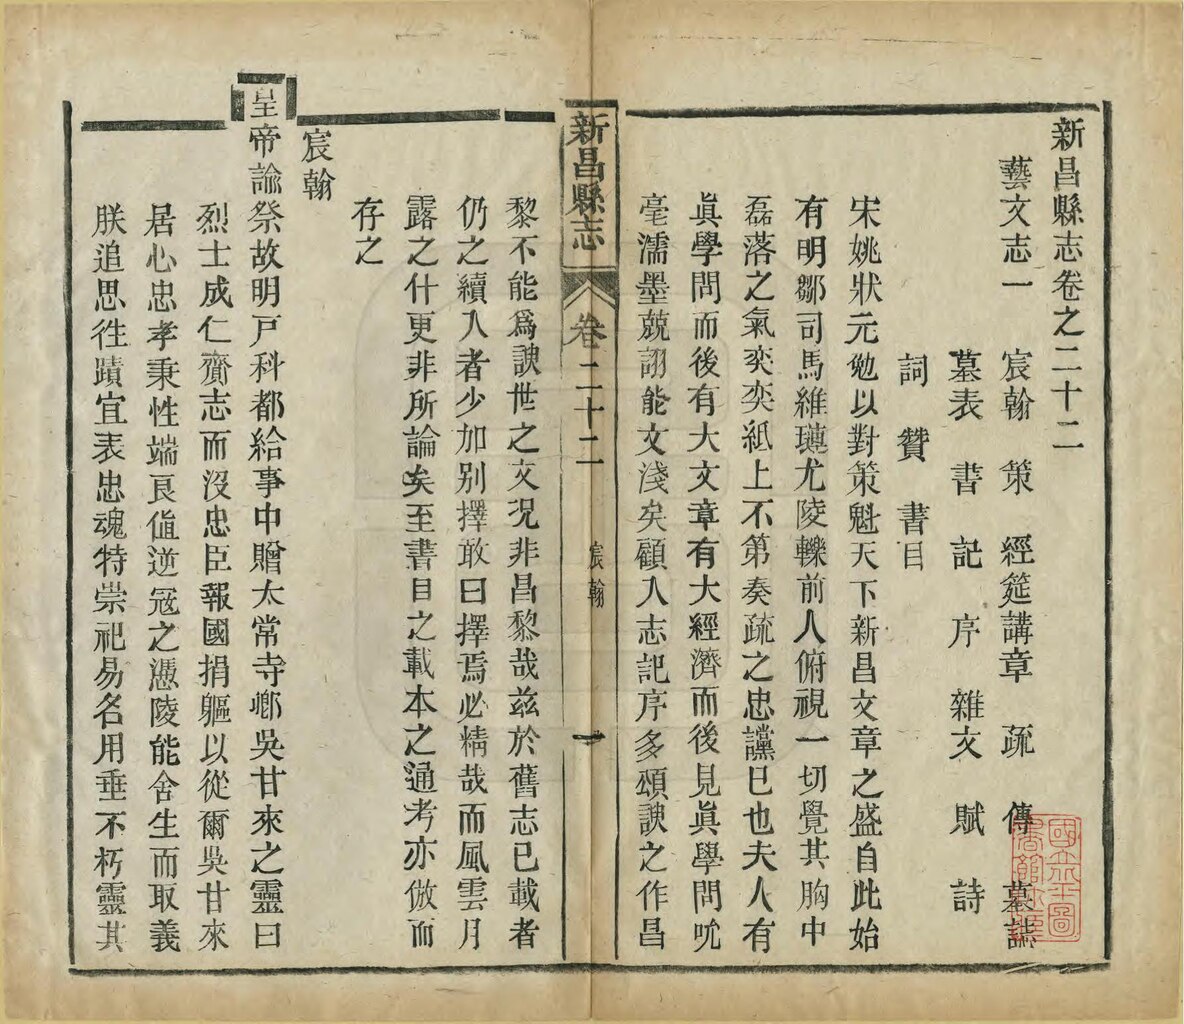 新昌縣志卷之二十二
藝文志一 宸翰 策 經筵講章 疏 傳 墓誌
墓表 書 記 序 雜文 賦 詩
詞 贊 書目
宋姚狀元勉以對策魁天下新昌文章之盛自此始
有明鄒司馬維璉尤陵轢前人俯視一切覺其胸中
磊落之氣奕奕紙上不第奏疏之忠讜已也夫人有
眞學問而後有大文章有大經濟而後見眞學問吮
毫濡墨兢詡能文淺矣顧人志記序多頌諛之作昌
新昌縣志 卷二十二 宸翰 一
黎不能爲諛世之文況非昌黎哉兹於舊志已載者
仍之續入者少加別擇敢曰擇焉必精哉而風雲月
露之什更非所論矣至書目之載本之通考亦倣而
存之
宸翰
皇帝諭祭故明戸科都給事中贈太常寺卿吳甘來之靈曰
烈士成仁齎志而沒忠臣報國捐軀以從爾吳甘來
居心忠孝秉性端良值逆冦之憑陵能舍生而取義
朕追思徃蹟宜表忠魂特崇祀易名用垂不朽靈其